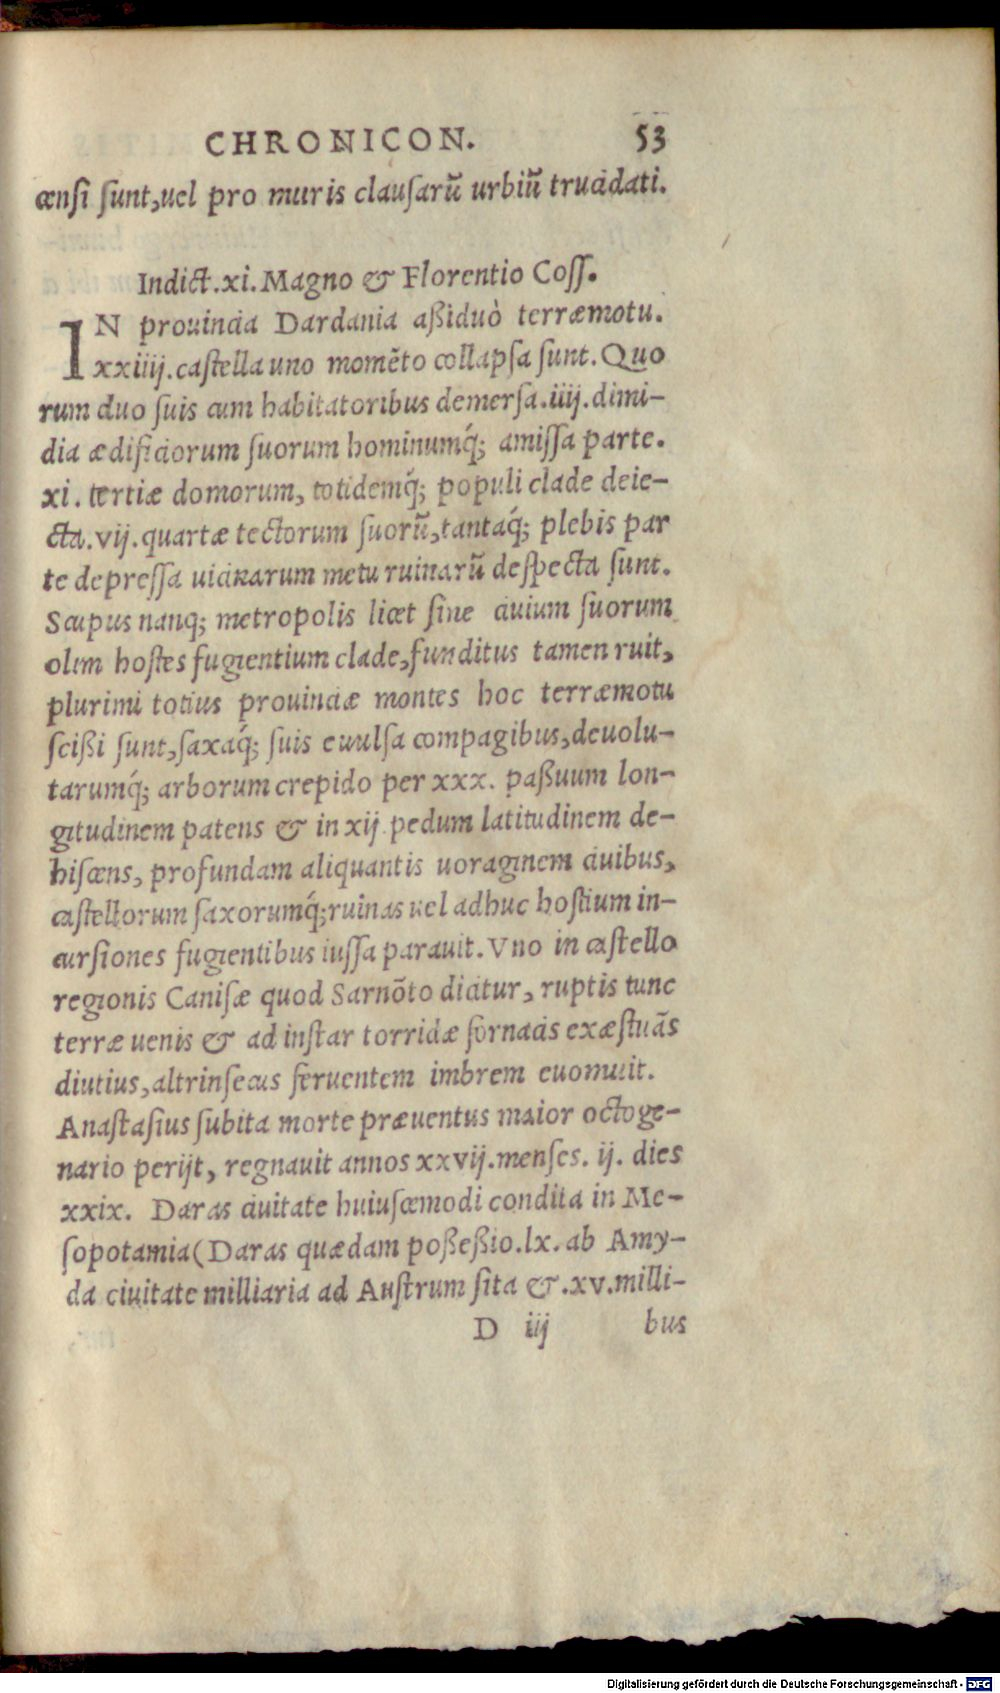 CHRONICON. 53
censi sunt, uel pro muris clausarũ urbiũ trucidati.
Indict. xi. Magno & Florentio Coss.
IN prouincia Dardania aßiduò terræmotu.
xxiiij. castella uno momẽto collapsa sunt. Quo
rum duo suis cum habitatoribus demersa. iiij. dimi-
dia ædificiorum suorum hominumq́; amissa parte.
xi. tertiæ domorum, totidemq́; populi clade deie-
cta. vij. quartæ tectorum suorũ, tantaq́; plebis par
te depressa uicinarum metu ruinarũ despecta sunt.
Scupus nanq; metropolis licet sine ciuium suorum
olim hostes fugientium clade, funditus tamen ruit,
plurimi totius prouinciæ montes hoc terræmotu
scißi sunt, saxaq́; suis euulsa compagibus, deuolu-
tarumq́; arborum crepido per xxx. paßuum lon-
gitudinem patens & in xij pedum latitudinem de-
hiscens, profundam aliquantis uoraginem ciuibus,
castellorum saxorumq́; ruinas uel adhuc hostium in-
cursiones fugientibus iussa parauit. Vno in castello
regionis Canisæ quod Sarnõto dicitur, ruptis tunc
terræ uenis & ad instar torridæ fornacis exæstuãs
diutius, altrinsecus feruentem imbrem euomuit.
Anastasius subita morte præuentus maior octoge-
nario perijt, regnauit annos xxvij. menses. ij. dies
xxix. Daras ciuitate huiuscemodi condita in Me-
sopotamia (Daras quædam poßeßio. lx. ab Amy-
da ciuitate milliaria ad Austrum sita &. xv. milli-
D iij bus
Digitalisierung gefördert durch die Deutsche Forschungsgemeinschaft - DFG